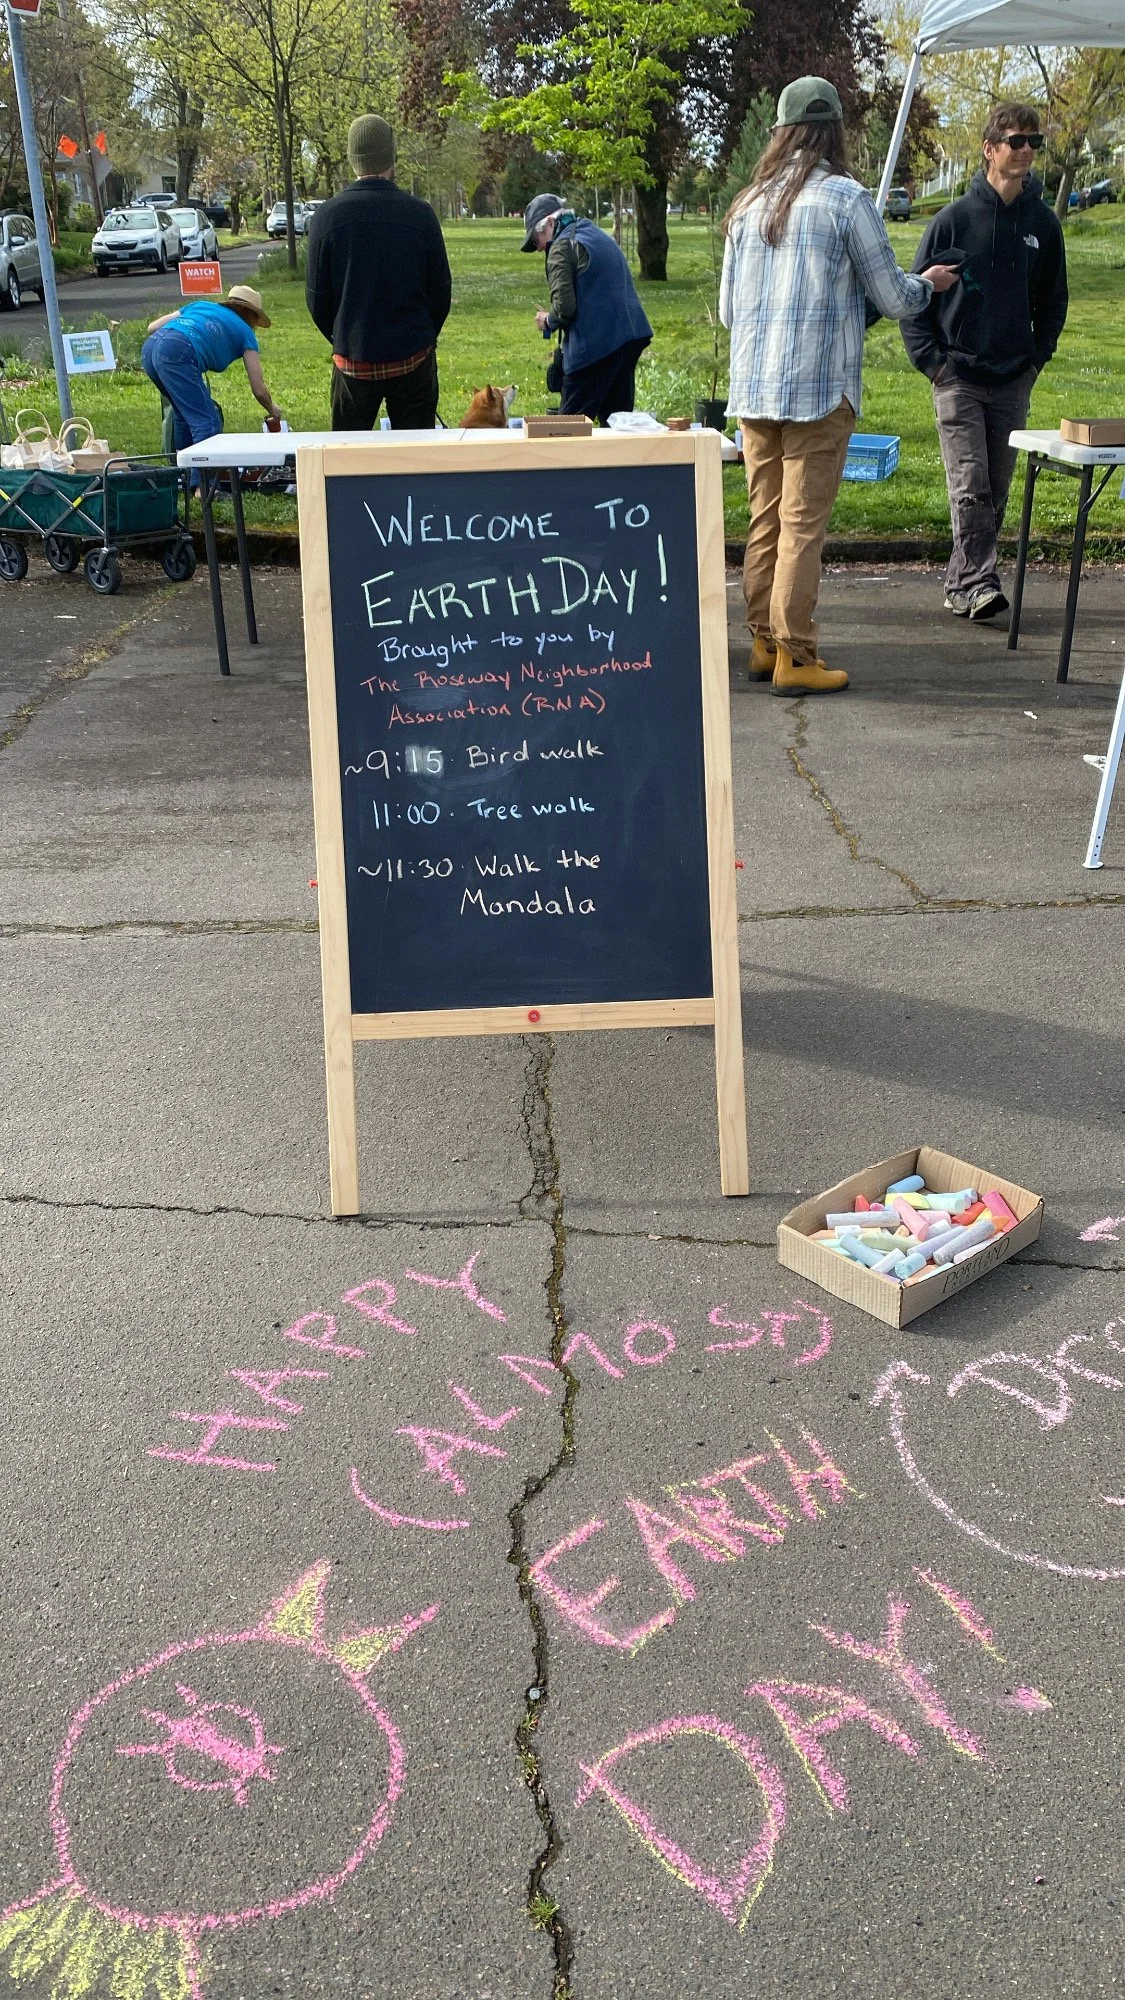 WATCH
POLLINATOR
PATHWAY
WELCOME TO
EARTH DAY!
Brought to you by
The Roseway Neighborhood
Association (RNA)
~9:15 · Bird walk
11:00 · Tree walk
~11:30 · Walk the
Mandala
PORTLAND
HAPPY
(ALMOST)
EARTH
DAY!